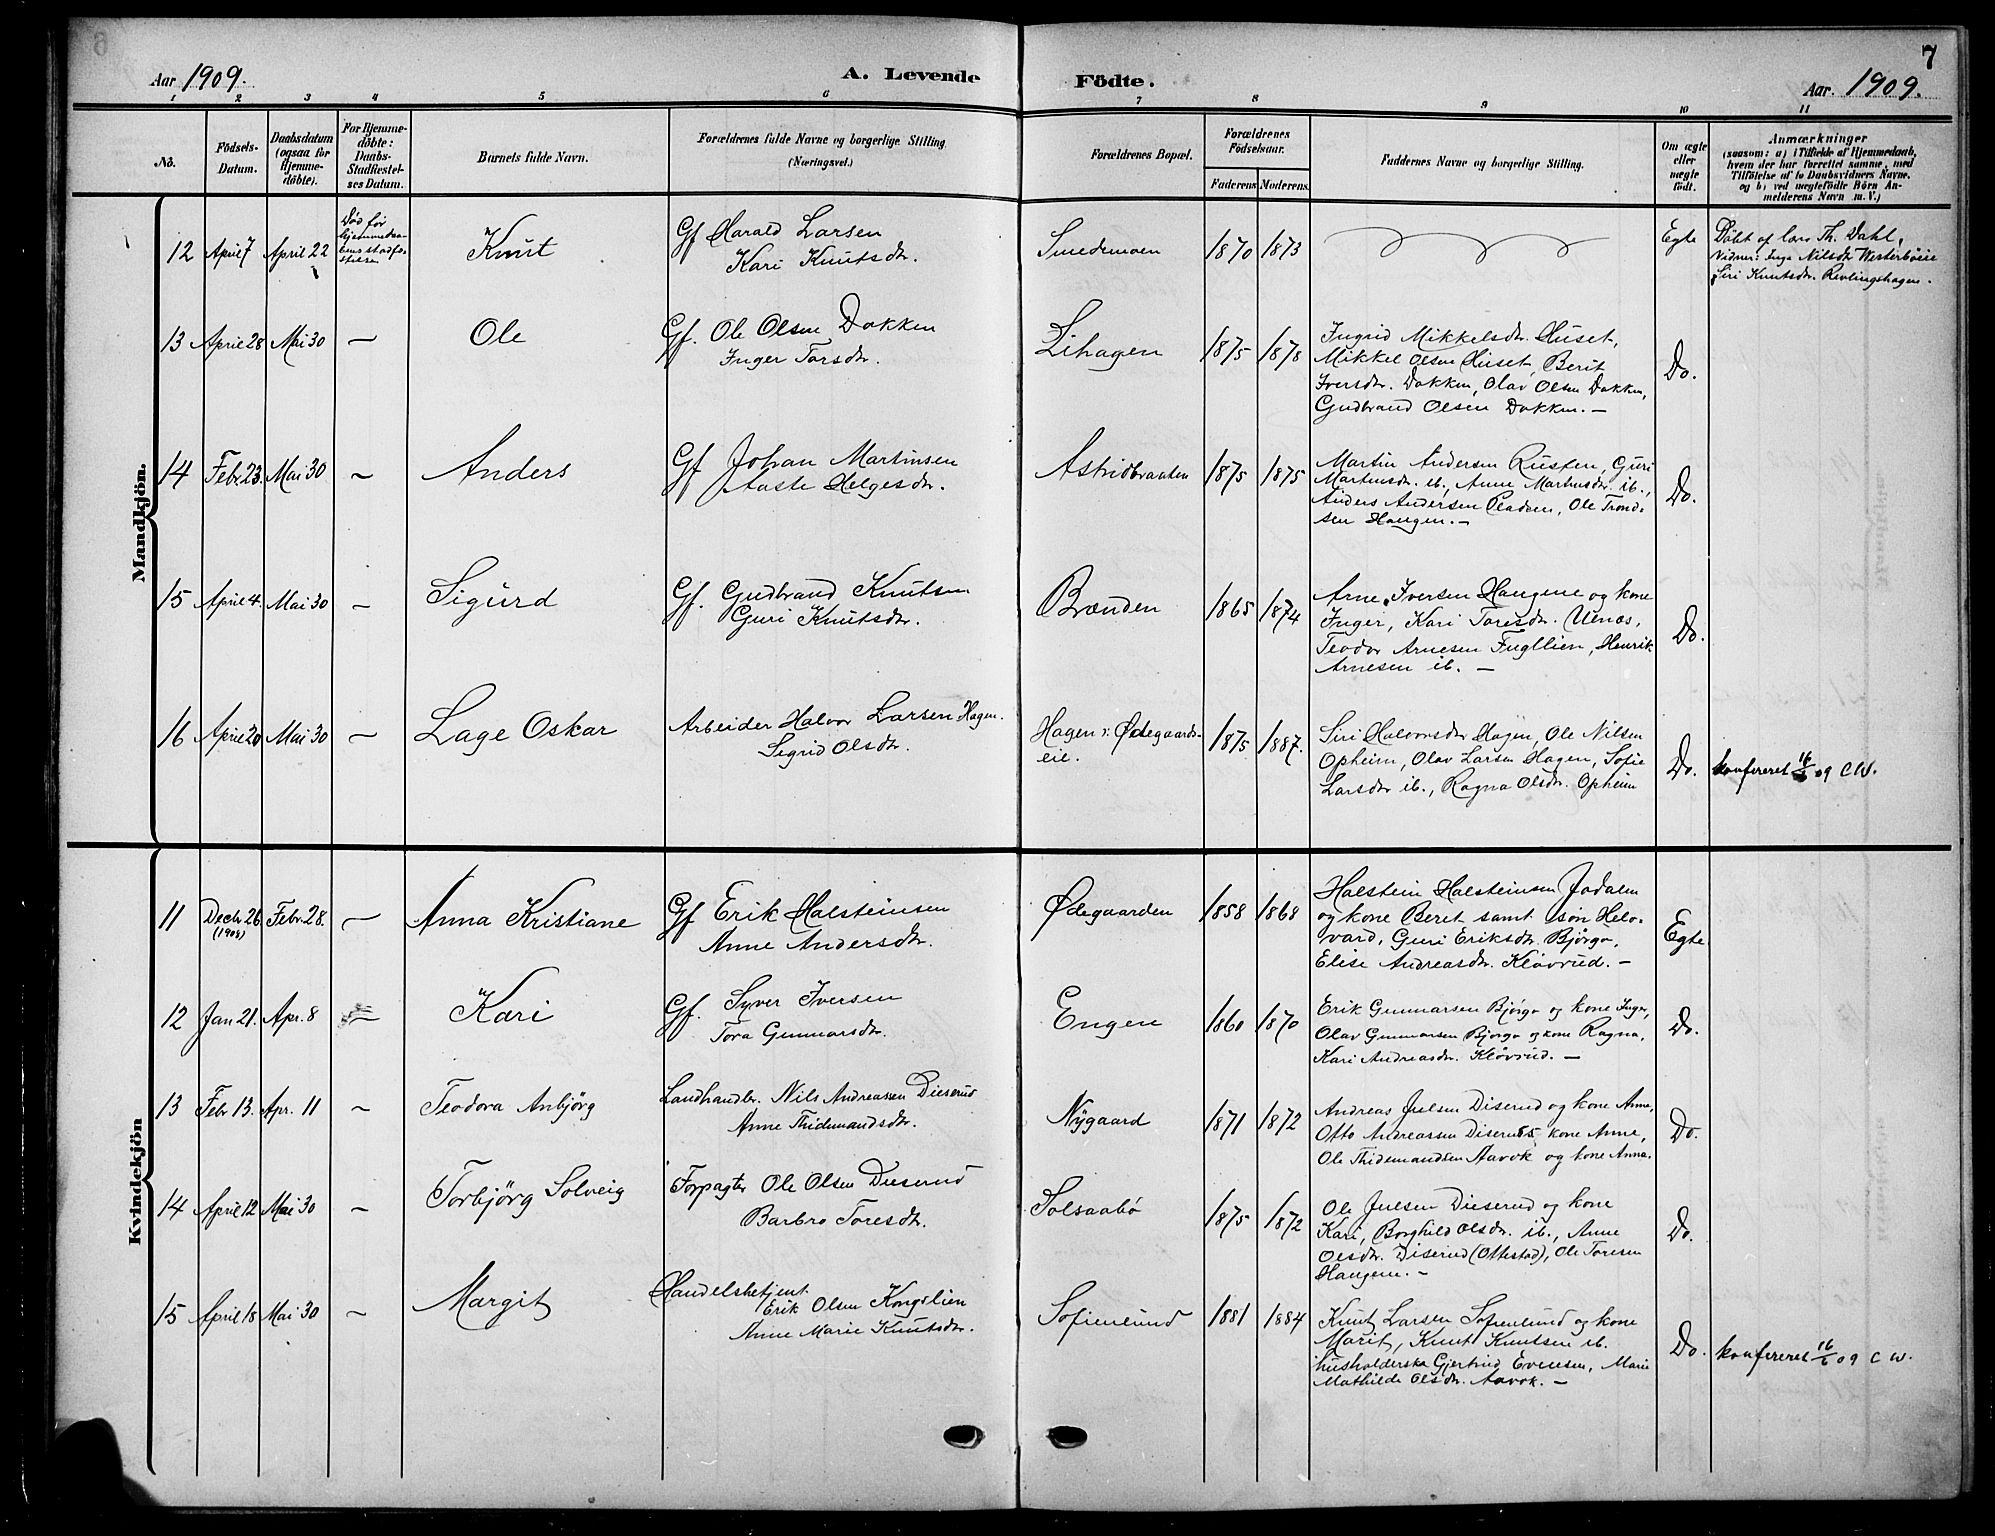 6
7
Aar 1909.
A. Levende Födte.
Aar. 1909.
1 2 3 4 5 6 7 8 9 10 11
No.
Födsels-Datum.
Daabsdatum (ogsaa for Hjemme-döbte).
For Hjemme-döbte: Daabs-Stadfæstel-ses Datum.
Barnets fulde Navn.
Forældrenes fulde Navne og borgerlige Stilling. (Næringsvei.)
Forældrenes Bopæl.
Forældrenes Födselsaar.
Faderens Moderens.
Faddernes Navne og borgerlige Stilling.
Om ægte eller uægte födt.
Anmærkninger
(saasom: a) i Tilfælde af Hjemmedaab,
hvem der har forrettet samme, med
Tilföielse af to Daabsvidners Navne.
og b) ved uægtefödte Börn An-
melderens Navn m. V.)
Mandkjön.
12 April 7 April 22 Død før hjemmedaa- bens stadfæ- stelse Knut
Gf Harald Larsen
Kari Knutsdr.
Smedemoen 1870 1873 Egte
Døbt af lærer Th. Dahl,
Vidner: Inga Nilsdr
Siri Knutsdr. Revlingshagen.
13 April 28 Mai 30 — Ole
Gf. Ole Olsen Dokken
Inger Torsdr.
Lihagen 1875 1878
Ingrid Mikkelsdr. Huset,
Mikkel Olsen Huset, Berit
Iversdr. Dokken, Olav Olsen Dokken,
Gudbrand Olsen Dokken. —
Do.
14 Febr. 23. Mai 30 — Anders
Gf Johan Martinsen
Aaste Helgesdr.
Astridbraaten 1875 1875
Martin Andersen Rusten, Guri
Martinsdr. ib., Anne Martinsdr. ib.,
Anders Andersen, Ole Trond-
sen Haugen. —
Do.
15 April 4. Mai 30 — Sigurd
Gf. Gudbrand Knutsen
Guri Knutsdr.
Brænden 1865 1874
Arne Iversen Haugene og kone
Inger, Kari Toresdr. Ulnæs,
Teodor Arnesen Fugllien, Henrik
Arnesen ib. —
Do.
16 April 20 Mai 30 — Lage Oskar
Arbeider Halvor Larsen Hagen.
Sigrid Olsdr.
Hagen v. Ødegaards-
eie.
1875 1887.
Siri Halvorsdr Hagen, Ole Nilsen
Opheim, Olav Larsen Hagen, Sofie
Larsdr ib., Ragna Olsdr. Opheim
Do. konfereret 16/6 09 C W.
Kvindekjön
11 Decbr 26. (1908) Febr. 28. — Anna Kristiane
Gf Erik Halsteinsen
Anne Andersdr.
Ødegaarden 1858 1868
Halstein Halsteinsen Jodalen
og kone Beret samt søn Hele-
vard, Guri Eriksdr. Bjørgo,
Elise Andreasdr. Kløvrud. —
Egte
12 Jan 21. Apr. 8 — Kari
Gf. Syver Iversen
Tora Gunnarsdr.
Engen 1860 1870
Erik Gunnarsen Bjørgo og kone Inger,
Olav Gunnarsen Bjørgo og kone Ragna,
Kari Andreasdr. Kløvrud. —
Do.
13 Febr 13. Apr. 11 — Teodora Anbjörg
Landhandlr. Nils Andreassen Dieserud
Anne Thidemandsdr.
Nygaard 1871 1872
Andreas Julsen Diserud og kone Anne,
Otto Andreassen Diserud, kone Anne,
Ole Thidemandsen Aavok og kone Anna.
Do.
14 April 12 Mai 30 — Torbjörg Solveig
Forpagter Ole Olsen Dieserud
Barbro Toresdr.
Solsaabø 1875 1872
Ole Julsen Dieserud og kone
Kari, Borghild Olsdr. ib., Anne
Olsdr. Diserud (Ottestad), Ole Toresen
Haugene. —
Do.
15 April 18 Mai 30 — Margit
Handelsbetjent
Erik Olsen Kongslien
Anne Marie Knutsdr.
Sofienlund 1881 1884
Knut Larsen Sofienlund og kone
Marit, Knut Knutsen ib.
husholderska Gjertrud Evensen, Marie
Mathilde Olsdr. Aavok. —
Do. konfereret 16/6 09 C W.